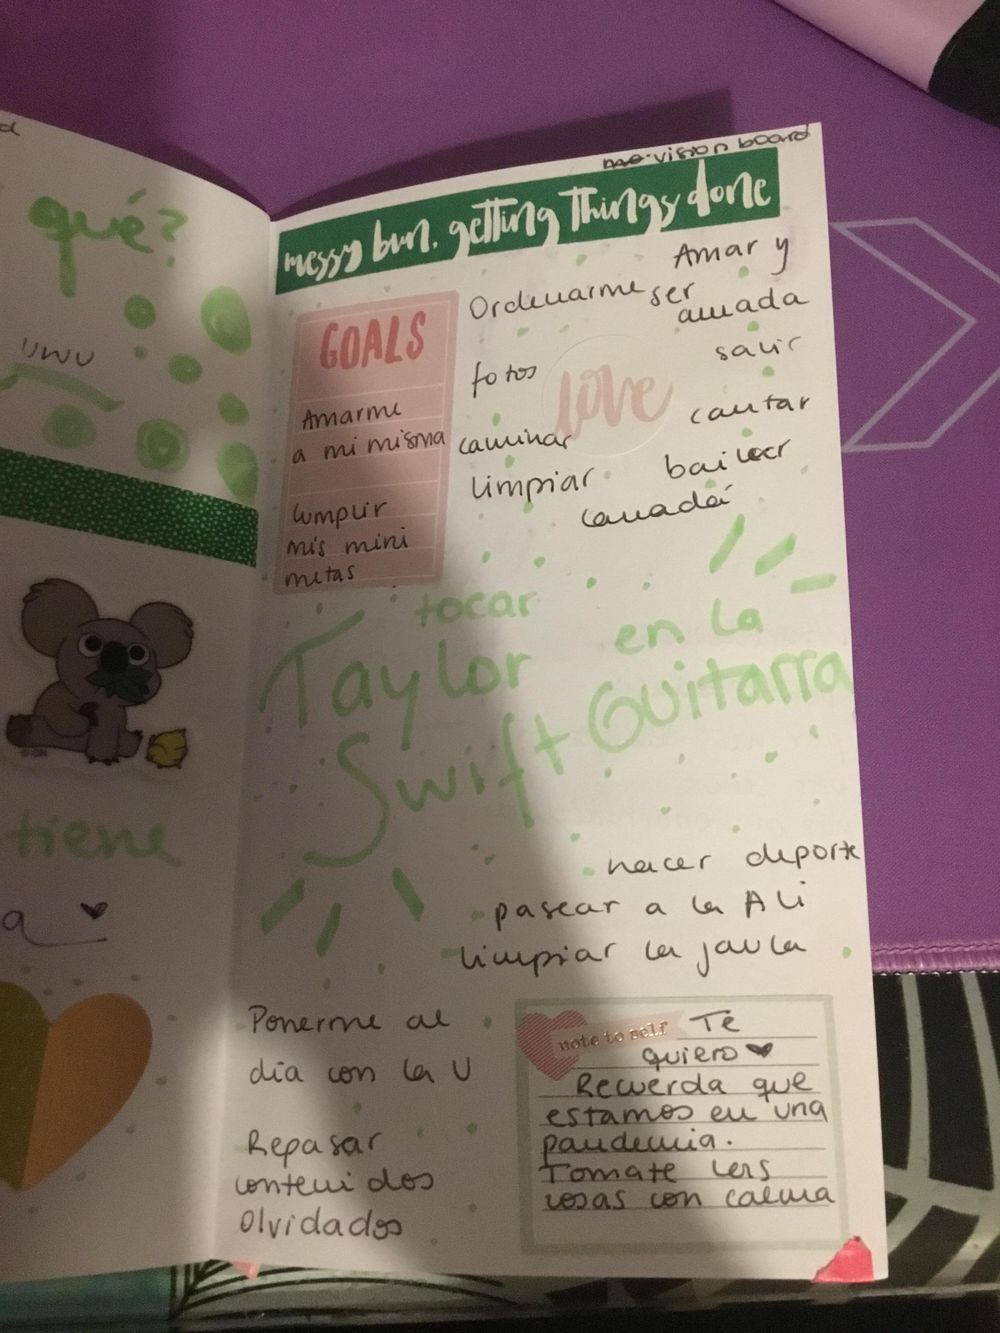 qué?
uwu
tiene
a
me vision board
messy bun. getting things done
GOALS
Amarme
a mi misma
Cumplir
mis mini
metas
Ordenarme
Amar y
ser
amada
fotos
love
salir
caminar
cantar
limpiar
bailar
Canadá
tocar
Taylor
Swift
en la
Guitarra
hacer deporte
pasear a la Ali
limpiar la jaula
Ponerme al
día con la U
Repasar
contenidos
Olvidados
note to self
Te
quiero
Recuerda que
estamos en una
pandemia.
Tomate las
cosas con calma